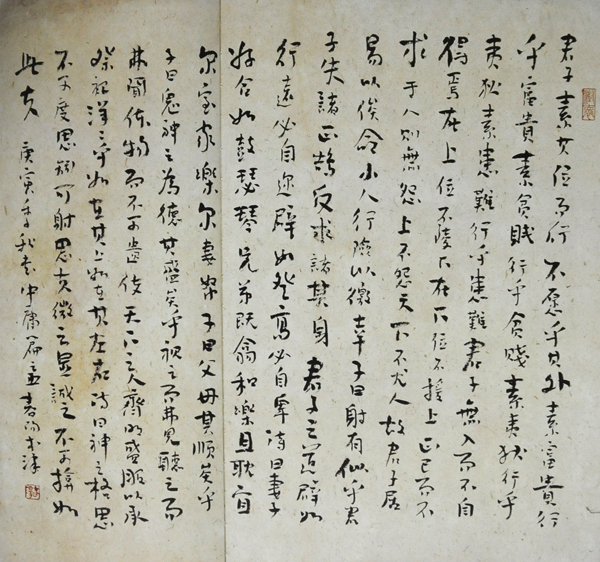 君子素其位而行不愿乎其外素富貴行
乎富貴素貧賤行乎貧賤素夷狄行乎
夷狄素患難行乎患難君子無入而不自
得焉在上位不陵下在下位不援上正己而不
求于人則無怨上不怨天下不尤人故君子居
易以俟命小人行險以徼幸子曰射有似乎君
子失諸正鵠反求諸其身君子之道辟如
行遠必自邇辟如登高必自卑詩曰妻子
好合如鼓瑟琴兄弟既翕和樂且耽宜
尔室家樂尔妻帑子曰父母其順矣乎
子曰鬼神之為德其盛矣乎視之而弗見聽之而
弗聞体物而不可遺使天下之人齊明盛服以承
祭祀洋〻乎如在其上如在其左右詩曰神之格思
不可度思矧可射思夫微之显誠之不可揜如
此夫 庚寅季秋書中庸篇